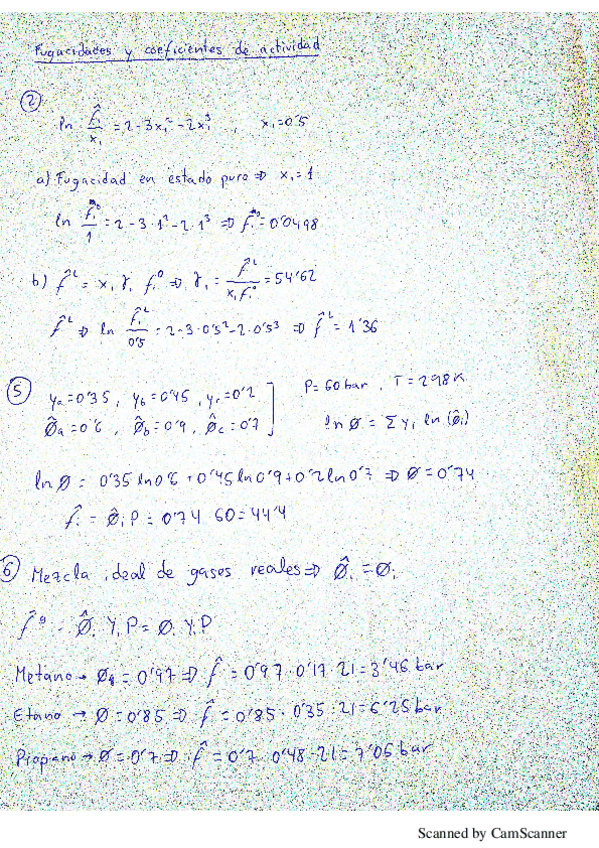 Fugacidades y coeficientes de actividad
②
ln f̂₁/x₁ = 2 - 3x₁² - 2x₁³ , x₁=0'5
a) Fugacidad en estado puro ⇒ x₁=1
ln f₁⁰/1 = 2 - 3·1² - 2·1³ ⇒ f₁⁰ = 0'0498
b) f̂ᴸ = x₁ γ₁ f₁⁰ ⇒ γ₁ = f̂ᴸ/(x₁f₁⁰) = 54'62
f̂ᴸ ⇒ ln f̂₁ᴸ/0'5 = 2 - 3·0'5² - 2·0'5³ ⇒ f̂ᴸ = 1'36
⑤ ya = 0'35 , yb = 0'45 , yc = 0'2 P = 60 bar , T = 298 K
ø̂a = 0'6 , ø̂b = 0'9 , ø̂c = 0'7 ln ø = Σ yi ln (ø̂i)
ln ø = 0'35 ln 0'6 + 0'45 ln 0'9 + 0'2 ln 0'7 ⇒ ø = 0'74
f̂. = ø̂i P = 0'74 60 = 44'4
⑥ Mezcla ideal de gases reales ⇒ ø̂i = øi
f̂ᵍ = ø̂i Yi P = øi Yi P
Metano → ø = 0'97 ⇒ f̂ = 0'97 · 0'17 · 21 = 3'46 bar
Etano → ø = 0'85 ⇒ f̂ = 0'85 · 0'35 · 21 = 6'25 bar
Propano → ø = 0'7 ⇒ f̂ = 0'7 · 0'48 · 21 = 7'05 bar
Scanned by CamScanner